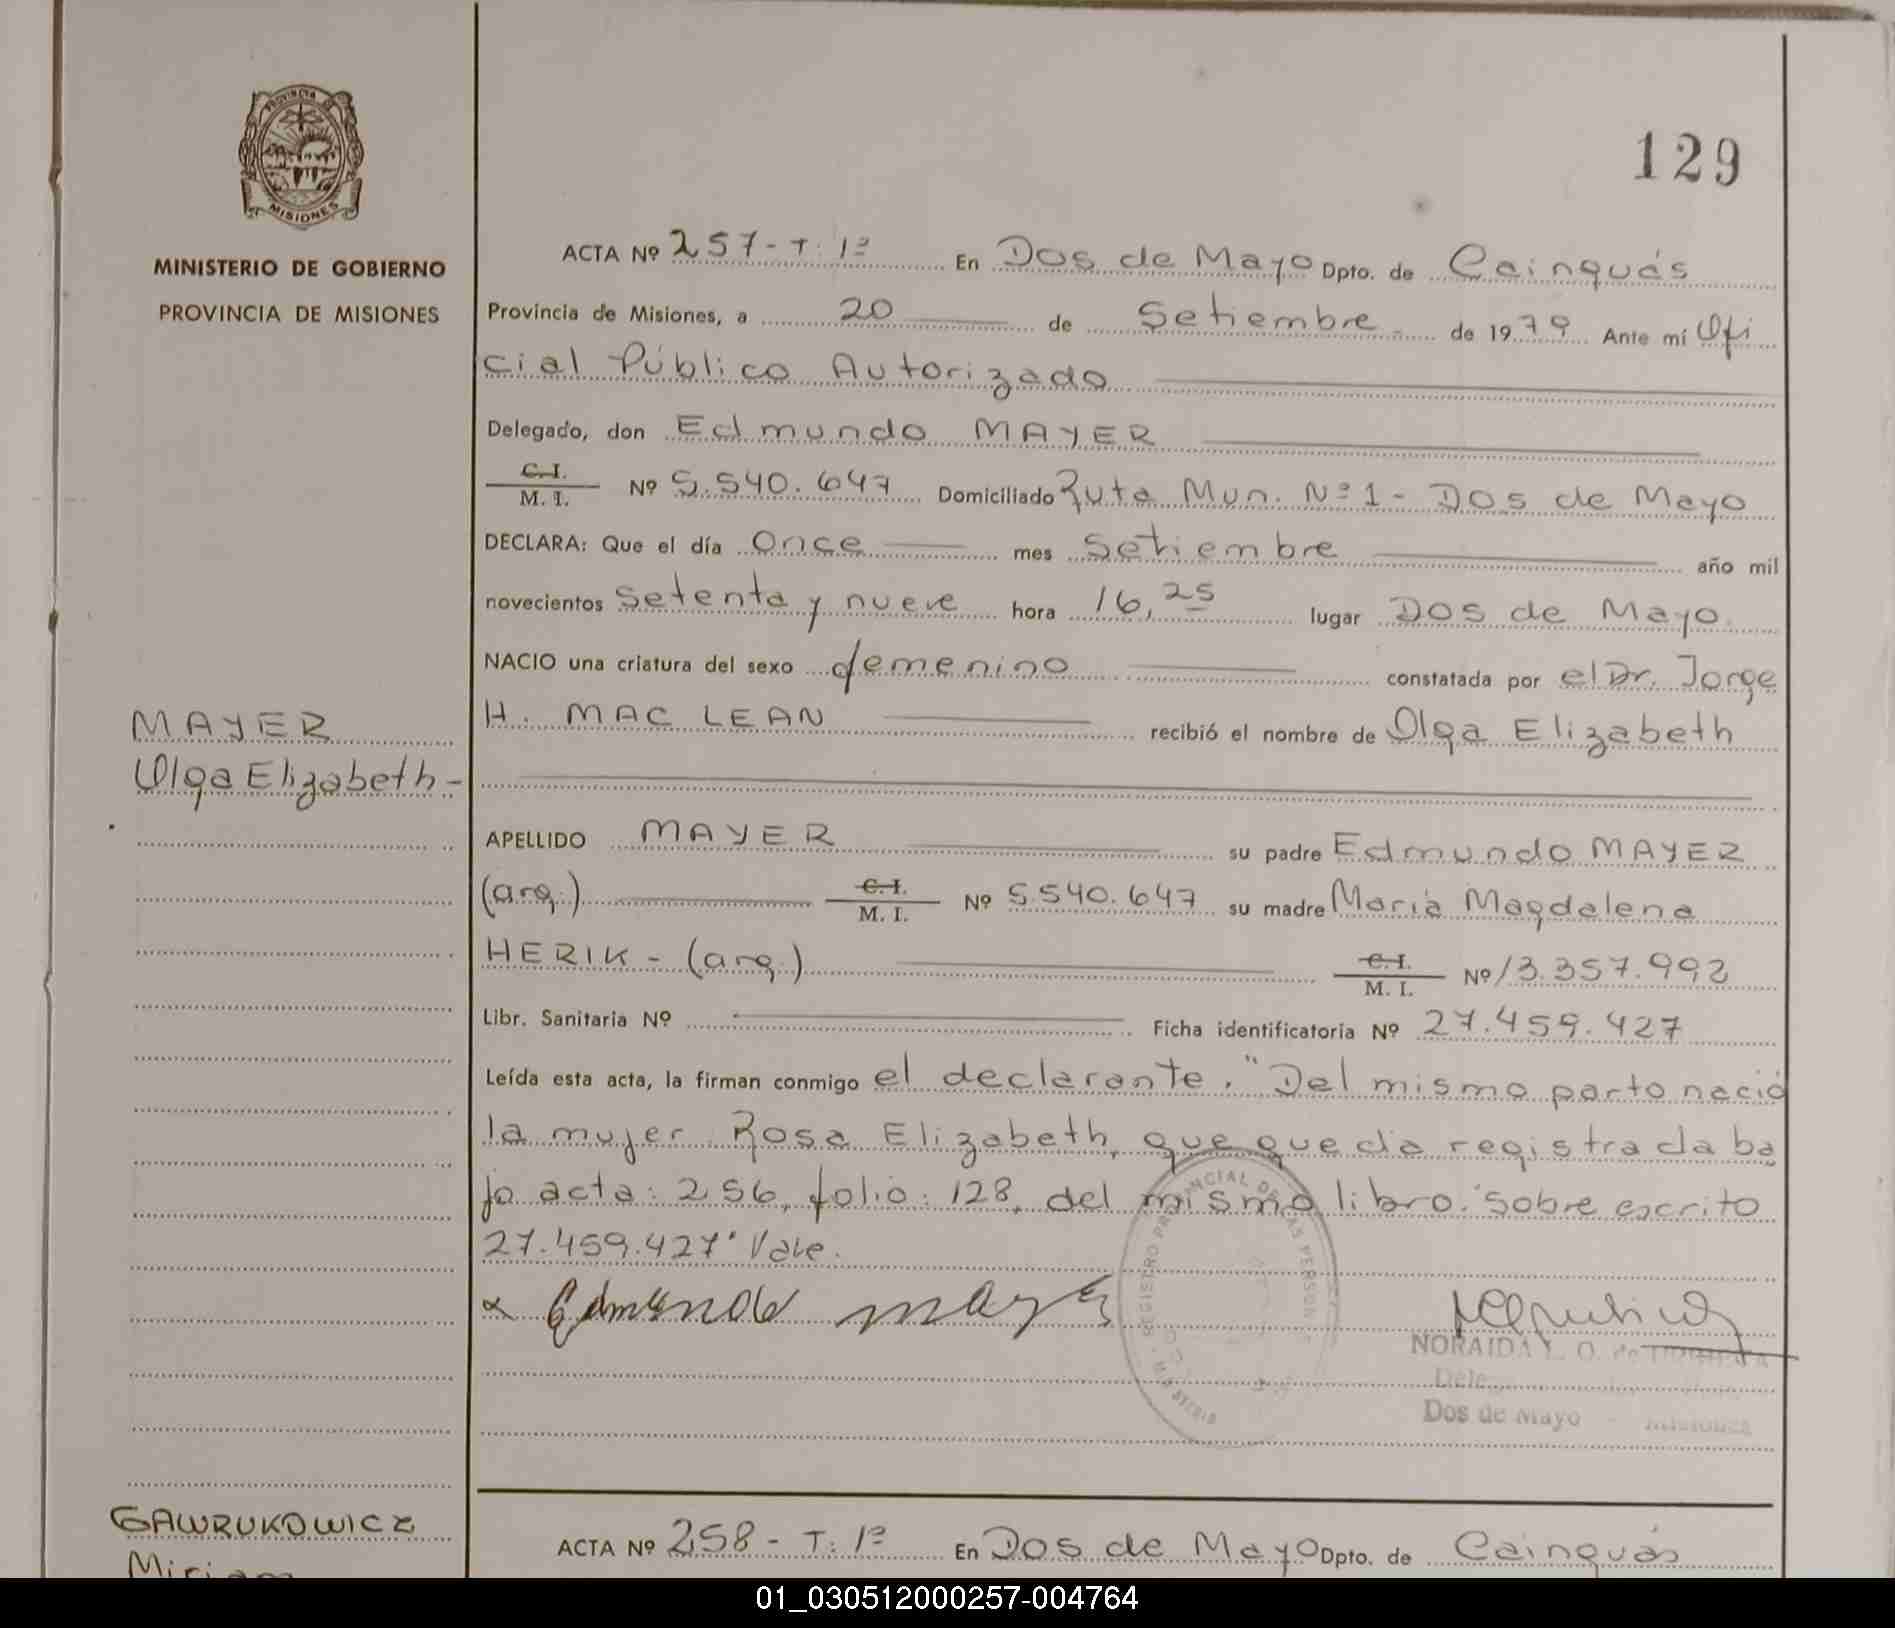 PROVINCIA DE
MISIONES
MINISTERIO DE GOBIERNO
PROVINCIA DE MISIONES
129
ACTA Nº 257 - T: 1º En Dos de Mayo Dpto. de Cainguás
Provincia de Misiones, a 20 de Setiembre de 1979 Ante mí Ofi
cial Público Autorizado
Delegado, don Edmundo MAYER
C.I.
M. I. Nº 5.540.647 Domiciliado Ruta Mun. Nº 1 - Dos de Mayo
DECLARA: Que el día Once mes Setiembre año mil
novecientos setenta y nueve hora 16,25 lugar Dos de Mayo
NACIO una criatura del sexo femenino constatada por el Dr. Jorge
H. MAC LEAN recibió el nombre de Olga Elizabeth
MAYER
Olga Elizabeth -
APELLIDO MAYER su padre Edmundo MAYER
(arg.) C.I. M. I. Nº 5.540.647 su madre María Magdalena
HERIK - (arg.) C.I. M. I. Nº 13.357.992
Libr. Sanitaria Nº Ficha identificatoria Nº 27.459.427
Leída esta acta, la firman conmigo el declarante. "Del mismo parto nació
la mujer Rosa Elizabeth, que queda registrada ba
jo acta: 256, folio: 128, del mismo libro. Sobre escrito
27.459.427" Vale.
Edmundo Mayer
REGISTRO PROVINCIAL DE LAS PERSONAS
NORAIDA L. O. de
Dos de Mayo - Misiones
GAWRUKOWICZ
Miriam
ACTA Nº 258 - T: 1º En Dos de Mayo Dpto. de Cainguás
01_030512000257-004764